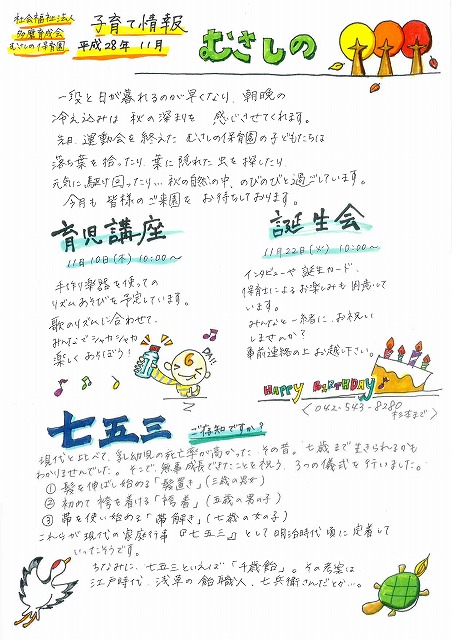 社会福祉法人
多摩育成会
むさしの保育園
子育て情報
平成28年 11月
むさしの
一段と日が暮れるのが早くなり、朝晩の
冷え込みは 秋の深まりを 感じさせてくれます。
先日、運動会を終えた むさしの保育園の子どもたちは
落ち葉を拾ったり、葉に隠れた虫を探したり、
元気に駆け回ったり… 秋の自然の中、のびのびと過ごしています。
今月も 皆様のご来園を お待ちしております。
育児講座
11月10日(木) 10:00〜
手作り楽器を使っての
リズムあそびを予定しています。
歌のリズムに合わせて、
みんなでシャカシャカ
楽しくあそぼう!
DAI!
誕生会
11月22日(火) 10:00〜
インタビューや誕生カード、
保育士によるお楽しみも用意して
います。
みんなと一緒に、お祝い
しませんか?
事前連絡の上お越し下さい。
HAPPY BIRTHDAY
042-543-8280
七五三
ご存知ですか?
現代と比べて、乳幼児の死亡率が高かった その昔。七歳まで生きられるかも
わかりませんでした。そこで、無事成長できたことを祝う、3つの儀式を行いました。
① 髪を伸ばし始める「髪置き」(三歳の男女)
② 初めて袴を着ける「袴着」(五歳の男の子)
③ 帯を使い始める「帯解き」(七歳の女の子)
これらが現代の家庭行事『七五三』として明治時代頃に定着して
いったそうです。
ちなみに、七五三といえば「千歳飴」。その考案は
江戸時代、浅草の飴職人、七兵衛さんだとか…。